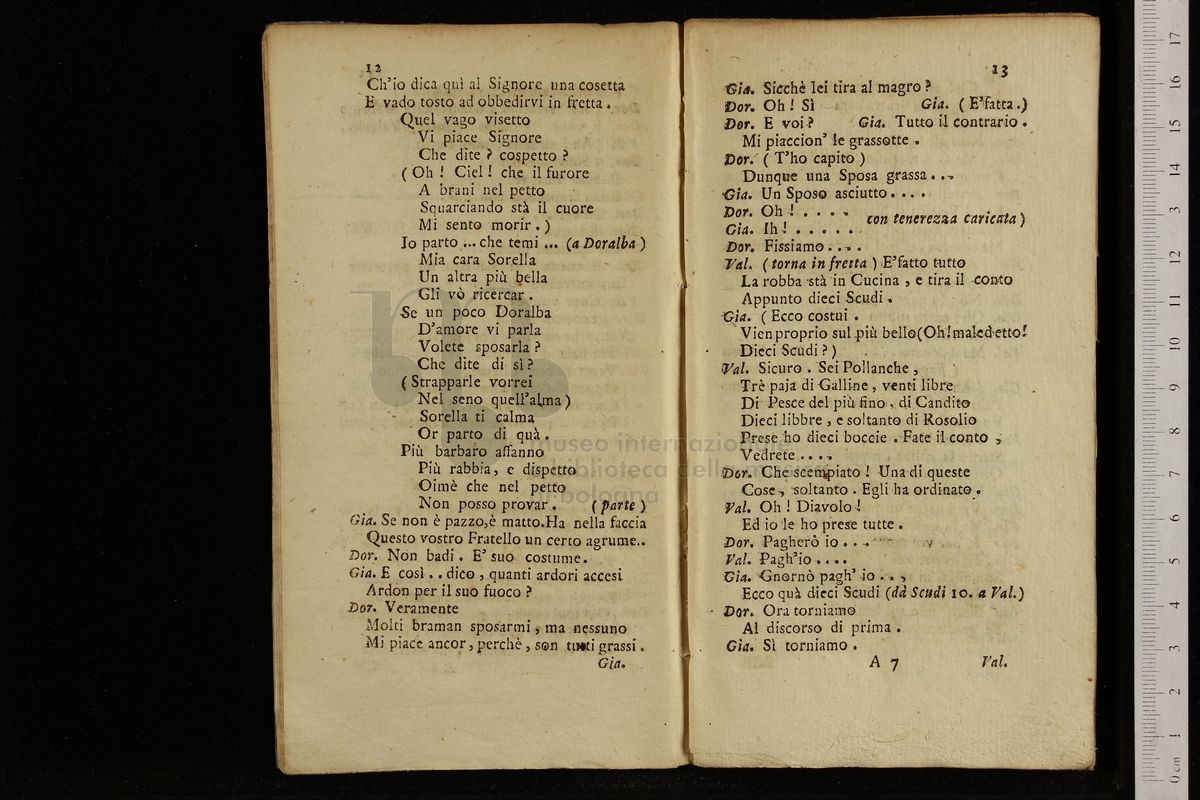 12
Ch'io dica quì al Signore una cosetta
E vado tosto ad obbedirvi in fretta.
Quel vago visetto
Vi piace Signore
Che dite? cospetto?
( Oh! Ciel! che il furore
A brani nel petto
Squarciando stà il cuore
Mi sento morir.)
Io parto ... che temi ... (a Doralba)
Mia cara Sorella
Un altra più bella
Gli vò ricercar.
Se un poco Doralba
D'amore vi parla
Volete sposarla?
Che dite di sì?
( Strapparle vorrei
Nel seno quell'alma)
Sorella ti calma
Or parto di quà.
Più barbaro affanno
Più rabbia, e dispetto
Oimè che nel petto
Non posso provar. (parte)
Gia. Se non è pazzo, è matto. Ha nella faccia
Questo vostro Fratello un certo agrume..
Dor. Non badi. E' suo costume.
Gia. E così.. dico, quanti ardori accesi
Ardon per il suo fuoco?
Dor. Veramente
Molti braman sposarmi, ma nessuno
Mi piace ancor, perchè, son tutti grassi.
Gia.
13
Gia. Sicchè lei tira al magro?
Dor. Oh! Sì Gia. (E'fatta.)
Dor. E voi? Gia. Tutto il contrario.
Mi piaccion' le grassotte.
Dor. ( T'ho capito )
Dunque una Sposa grassa...
Gia. Un Sposo asciutto....
Dor. Oh!....
con tenerezza caricata)
Gia. Ih!......
Dor. Fissiamo....
Val. (torna in fretta) E'fatto tutto
La robba stà in Cucina, e tira il conto
Appunto dieci Scudi.
Gia. ( Ecco costui.
Vien proprio sul più bello (Oh! maledetto!
Dieci Scudi?)
Val. Sicuro. Sei Pollanche,
Trè paja di Galline, venti libre
Di Pesce del più fino, di Candito
Dieci libbre, e soltanto di Rosolio
Prese ho dieci boccie. Fate il conto,
Vedrete....
Dor. Che scempiato! Una di queste
Cose, soltanto. Egli ha ordinato.
Val. Oh! Diavolo!
Ed io le ho prese tutte.
Dor. Pagherò io...
Val. Pagh'io....
Gia. Gnornò pagh' io...
Ecco quà dieci Scudi (dà Scudi 10. a Val.)
Dor. Ora torniamo
Al discorso di prima.
Gia. Sì torniamo.
A 7 Val.
museo internazionale
biblioteca della musica
di bologna
0 cm 1 2 3 4 5 6 7 8 9 10 11 12 13 14 15 16 17